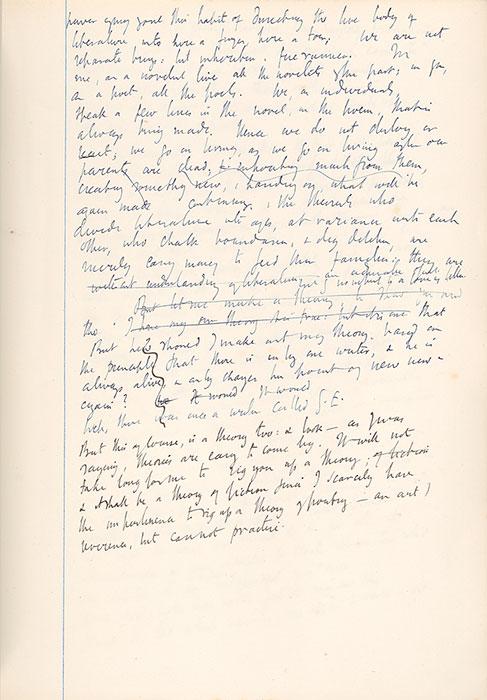 never quite gone this habit of dissecting the live body of
literature into here a finger, here a toe; We are not
separate beings: but inheritors. forerunners. In
me, as a novelist live all the novelists of the past; in you,
as a poet, all the poets. We, as individuals,
speak a few lines in the novel, in the poem, that is
always being made. Hence we do not destroy or
react; we go on living, as we go on living after our
parents are dead, inheriting much from them,
creating something new, & handing on what will be
again made continuing. & the theorists who
divide literature into ages, at variance with each
other, who chalk boundaries, & dig ditches, are
merely earning money to feed their families: they are
without understanding of literature,
But let me make a theory, to
have my own theory
But he should I make out my theory. based on
the principle that there is only one writer, & he is
always alive & only changes his point of view now &
again? It would It would
there was once a writer called S. E.
But this of course, is a theory too: & look — as I was
saying, theories are easy to come by. It will not
take long for me to rig you up, a theory, of fiction
& it shall be a theory of fiction since I scarcely have
the impertinence to rig up a theory of poetry — an art I
reverence, but cannot practise.